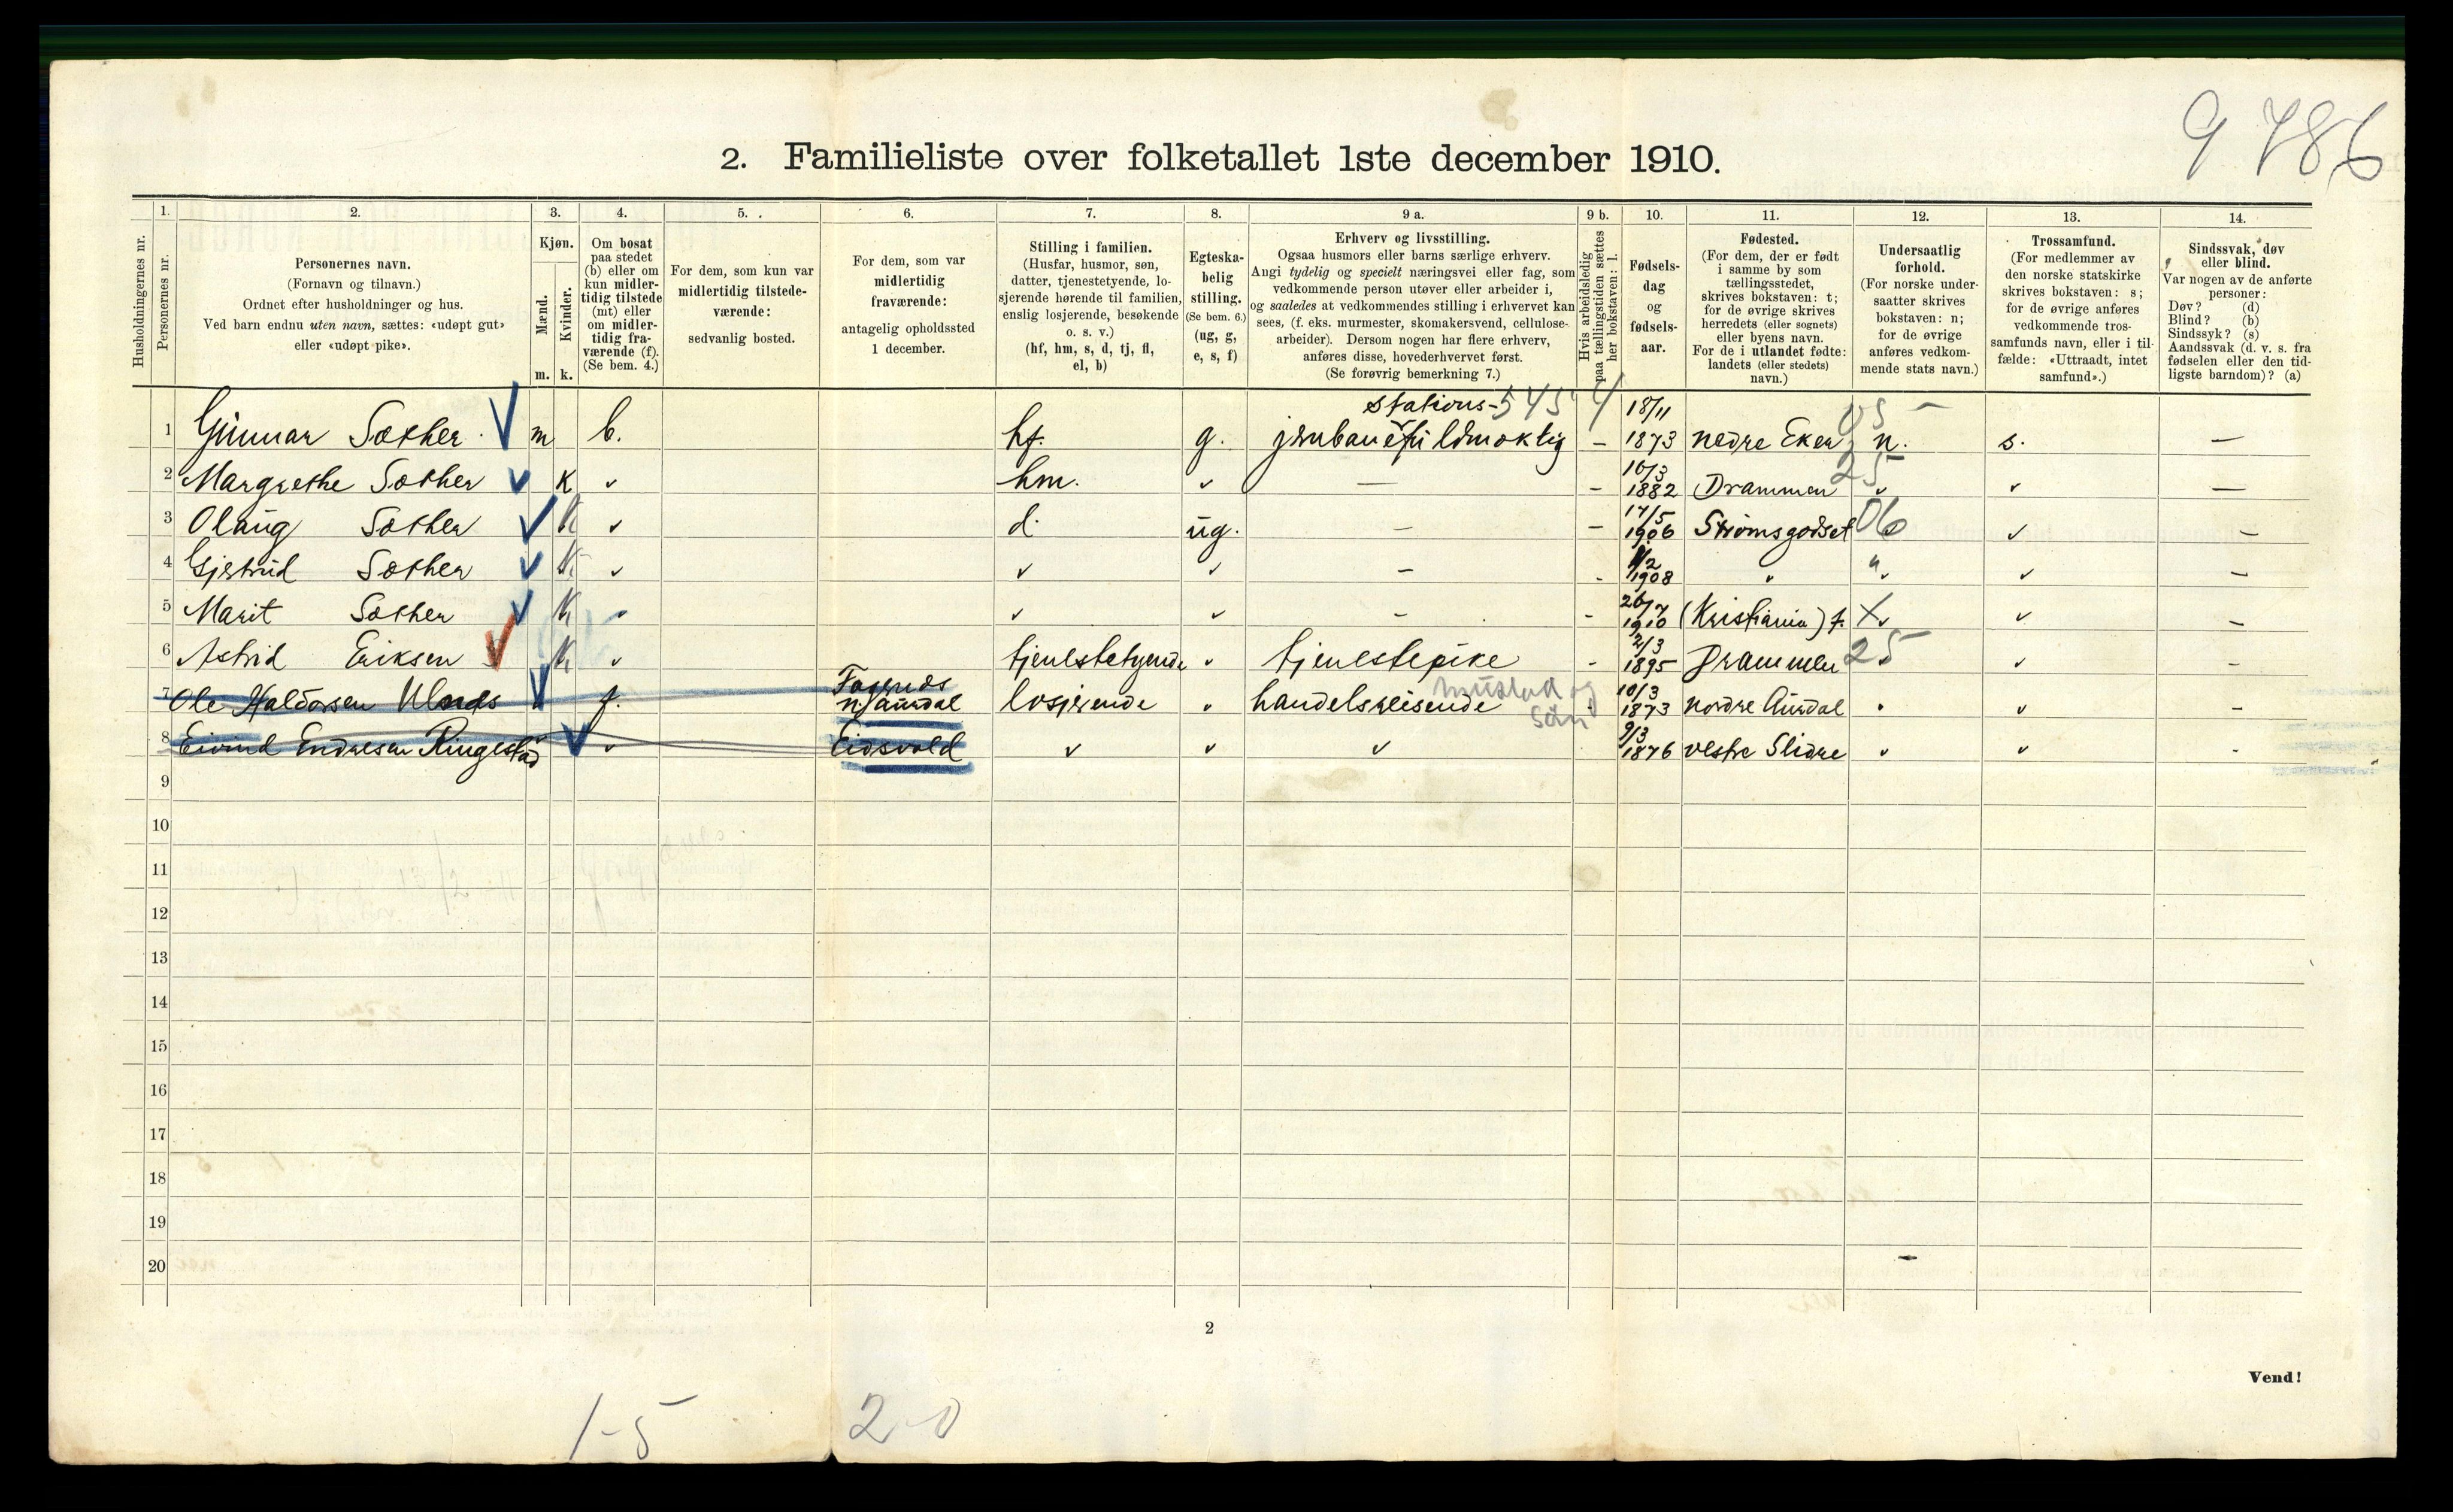 9 786
2. Familieliste over folketallet 1ste december 1910.
1. 2. 3. 4. 5. 6. 7. 8. 9 a. 9 b. 10. 11. 12. 13. 14.
Husholdningernes nr.
Personernes nr.
Personernes navn.
(Fornavn og tilnavn.)
Ordnet efter husholdninger og hus.
Ved barn endnu uten navn, sættes: «udøpt gut»
eller «udøpt pike».
Kjøn.
Mænd.
Kvinder.
m. k.
Om bosat
paa stedet
(b) eller om
kun midler-
tidig tilstede
(mt) eller
om midler-
tidig fra-
værende (f).
(Se bem. 4.)
For dem, som kun var
midlertidig tilstede-
værende:
sedvanlig bosted.
For dem, som var
midlertidig
fraværende:
antagelig opholdssted
1 december.
Stilling i familien.
(Husfar, husmor, søn,
datter, tjenestetyende, lo-
sjerende hørende til familien,
enslig losjerende, besøkende
o. s. v.)
(hf, hm, s, d, tj, fl,
el, b)
Egteska-
belig
stilling.
(Se bem. 6.)
(ug, g,
e, s, f)
Erhverv og livsstilling.
Ogsaa husmors eller barns særlige erhverv.
Angi tydelig og specielt næringsvei eller fag, som
vedkommende person utøver eller arbeider i,
og saaledes at vedkommendes stilling i erhvervet kan
sees, (f. eks. murmester, skomakersvend, cellulose-
arbeider). Dersom nogen har flere erhverv,
anføres disse, hovederhvervet først.
(Se forøvrig bemerkning 7.)
Hvis arbeidsledig
paa tællingstiden sættes
her bokstaven: l.
Fødsels-
dag
og
fødsels-
aar.
Fødested.
(For dem, der er født
i samme by som
tællingsstedet,
skrives bokstaven: t;
for de øvrige skrives
herredets (eller sognets)
eller byens navn.
For de i utlandet fødte:
landets (eller stedets)
navn.)
Undersaatlig
forhold.
(For norske under-
saatter skrives
bokstaven: n;
for de øvrige
anføres vedkom-
mende stats navn.)
Trossamfund.
(For medlemmer av
den norske statskirke
skrives bokstaven: s;
for de øvrige anføres
vedkommende tros-
samfunds navn, eller i til-
fælde: «Uttraadt, intet
samfund».)
Sindssvak, døv
eller blind.
Var nogen av de anførte
personer:
Døv? (d)
Blind? (b)
Sindssyk? (s)
Aandssvak (d. v. s. fra
fødselen eller den tid-
ligste barndom)? (a)
stations- 545 4 18/11 05 –
1 Gunnar Sæther. m b. hf. g. jernbanefuldmæktig – 1873 nedre Eker n. s. –
10/3 25
2 Margrethe Sæther K ✓ hm. ✓ – – 1882 Drammen ✓ ✓ –
17/5
3 Olaug Sæther K ✓ d. ug. – – 1906 Strømsgodset 06 ✓ –
1/2
4 Gjertrud Sæther K ✓ ✓ ✓ – - 1908 " " ✓ –
26/7
5 Marit Sæther K ✓ ✓ – - 1910 (Kristiania) t. X ✓ –
2/3
6 Astrid Eriksen K ✓ tjenestetyende ✓ tjenestepike - 1895 Drammen 25 ✓ -
Fagernes mustad og 10/3
7 Ole Haldorsen f. n/aurdal losjerende ✓ handelsreisende Søn 1873 nordre Aurdal ✓ ✓ -
9/3
8 Eivind Endresen Ringestad ✓ Eidsvold ✓ ✓ ✓ 1876 vestre Slidre ✓ ✓ -
9
10
11
12
13
14
15
16
17
18
19
20
2
Vend!
1-5 2-0